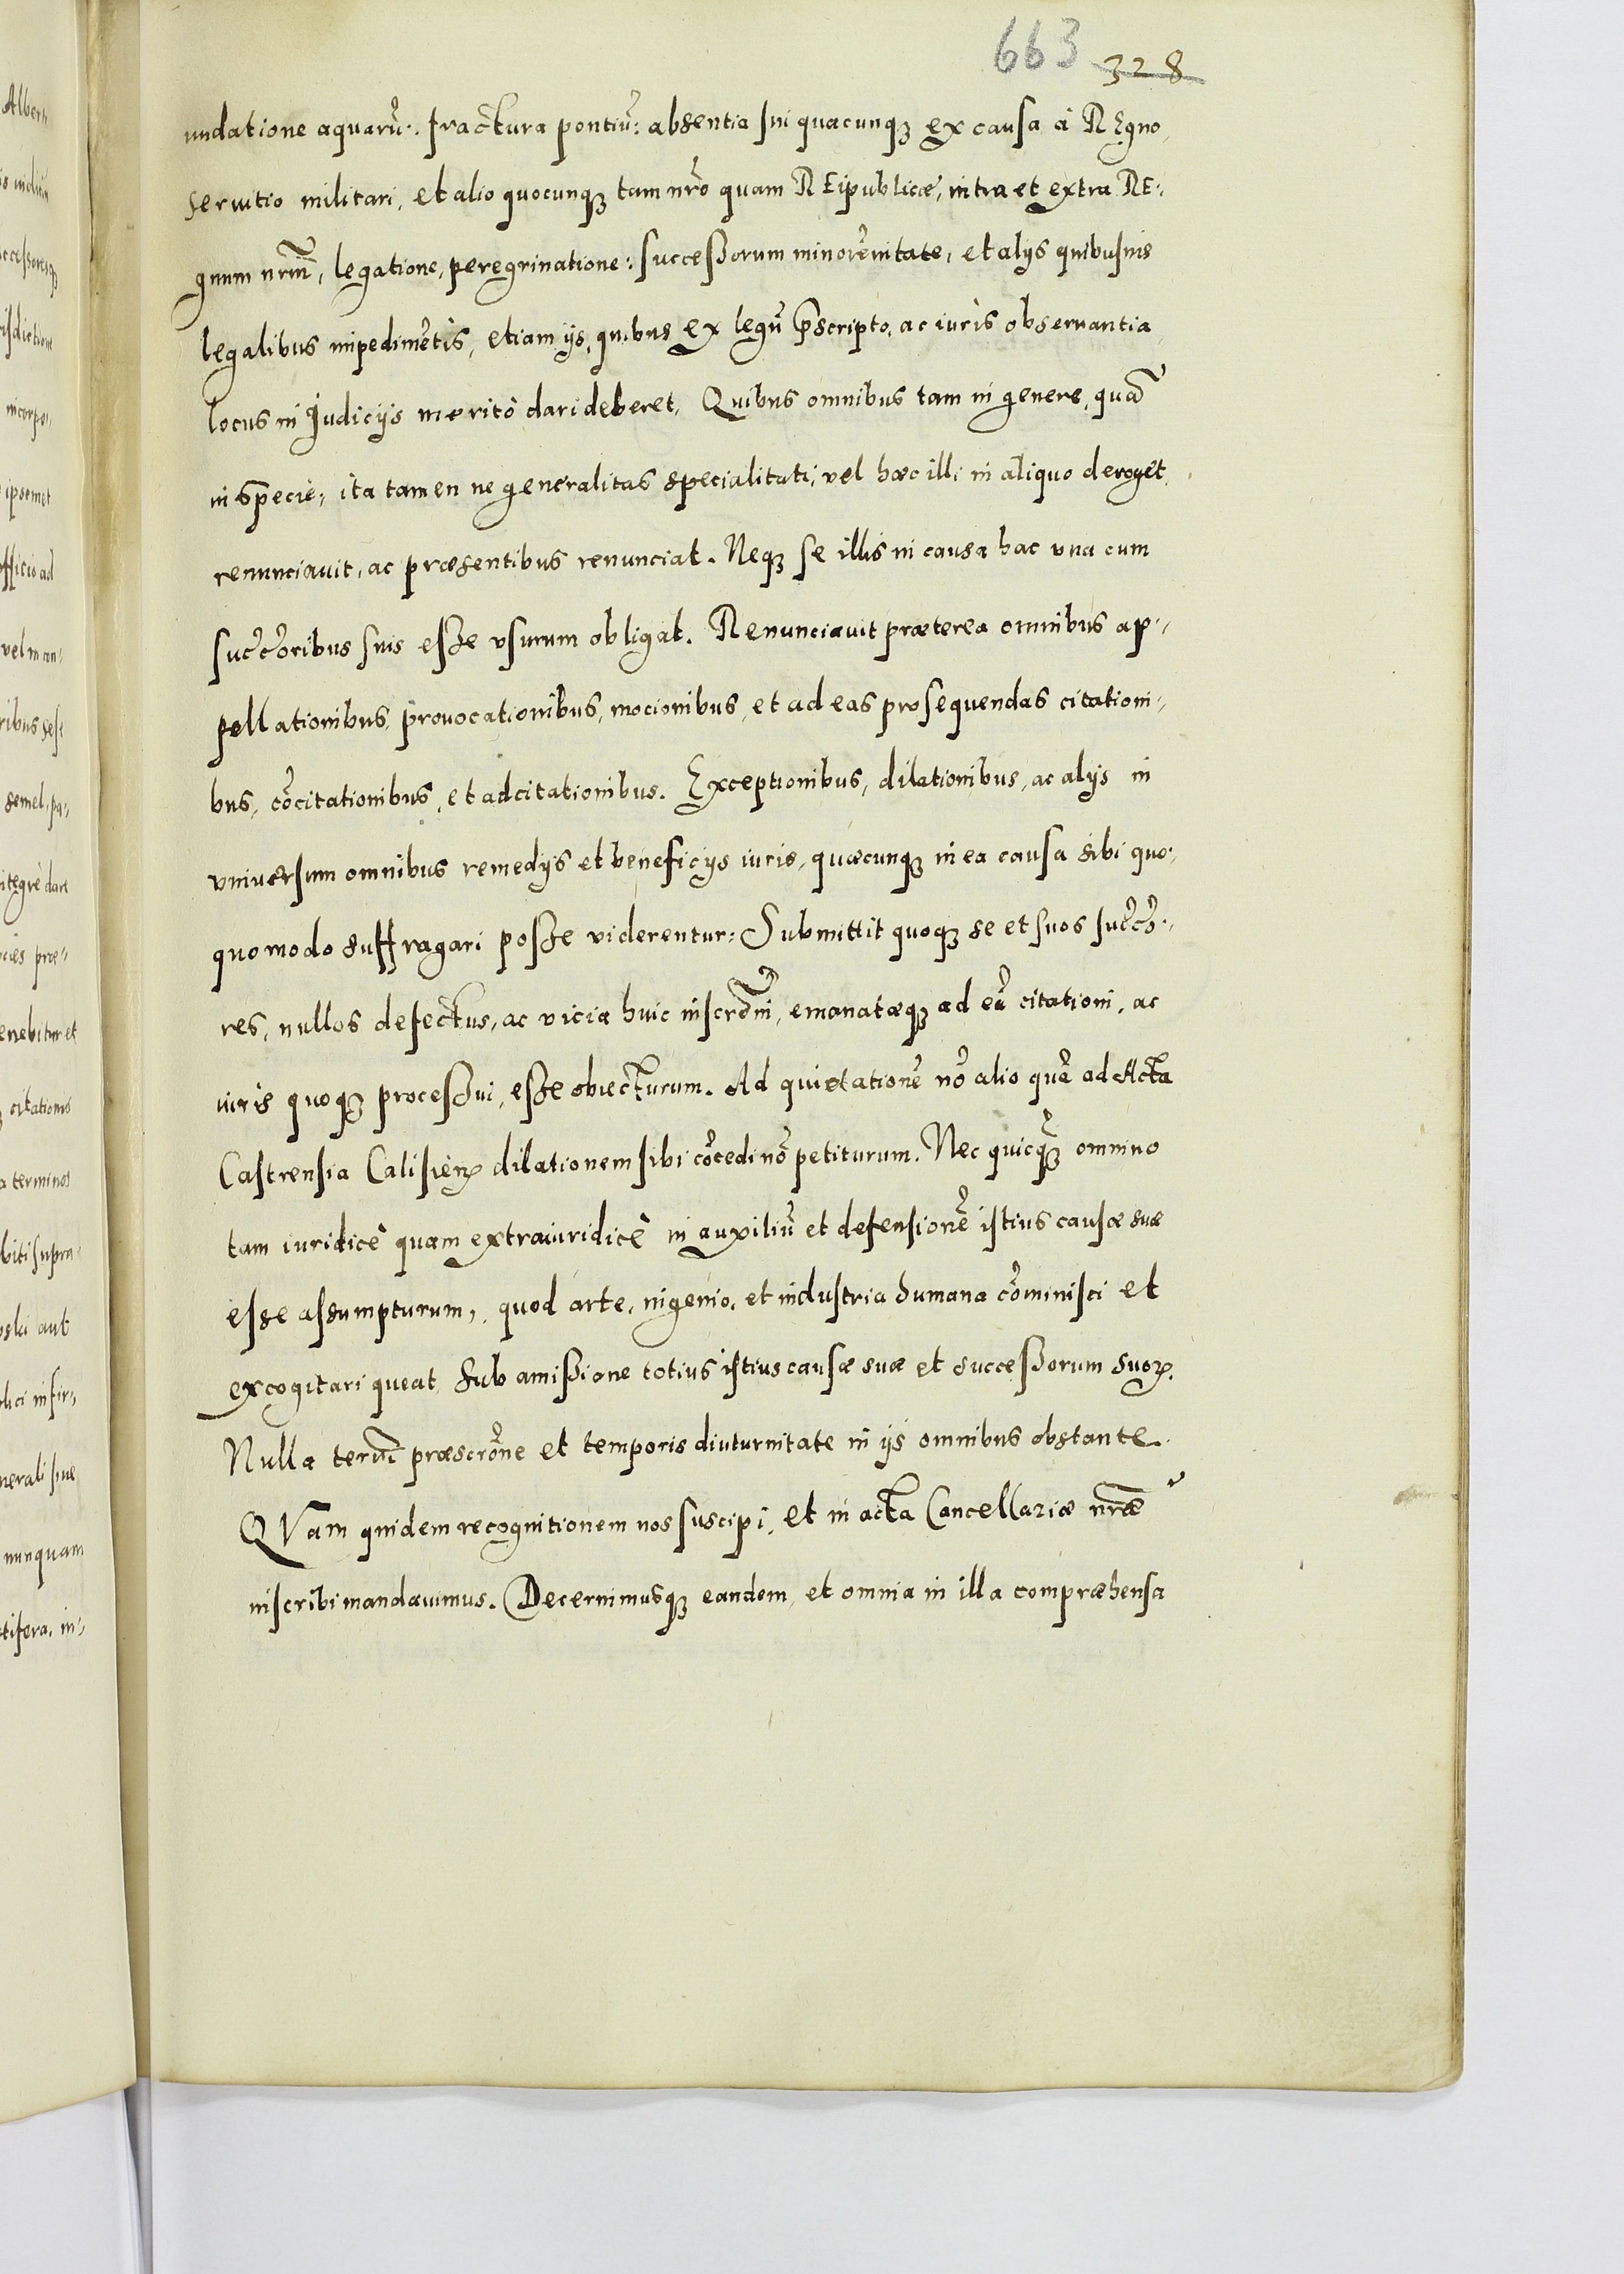 663 328
undatione aquarū: fractura pontiū: absentia sui quacunqꝫ ex causa à REgno,
seruitio militari, et alio quocunqꝫ tam nr̃o quam REipublicæ, intra et extra RE:
gnum nr̃m, legatione, peregrinatione: successorum minorēnitate, et alijs quibusuis
legalibus impedimētis, etiam ijs, quibus ex legū p̃scripto, ac iuris obseruantia,
locus in Judicijs meritò dari deberet, Quibus omnibus tam in genere, quā
in specie, ita tamen ne generalitas specialitati, vel hæc illi in aliquo deroget,
renunciauit, ac præsentibus renunciat. Neqꝫ se illis in causa hac vna cum
succ̃oribus suis esse vsurum obligat. Renunciauit præterea omnibus ap:
pellationibus, prouocationibus, mocionibus, et ad eas prosequendas citationi:
bus, cōcitationibus, et adcitationibus. Exceptionibus, dilationibus, ac alijs in
vniuersum omnibus remedijs et beneficijs iuris, quæcunqꝫ in ea causa sibi quo:
quomodo suffragari posse viderentur: Submittit quoqꝫ se et suos succ̃o:
res, nullos defectus, ac vicia huic inscrõni, emanatæqꝫ ad eā citationi, ac
iuris quoqꝫ processui, esse obiecturum. Ad quietationē nō alio quā ad Acta
Castrensia Calisieñ dilationem sibi cōcedi nō petiturum. Nec quicqꝫ omnino
tam iuridicè quam extraiuridicè in auxiliū et defensionē istius causæ suæ
esse assumpturum, quod arte, ingenio, et industria humana cōminisci et
excogitari queat, sub amissione totius istius causæ suæ et successorum suoꝝ.
Nulla terrū præscrõne et temporis diuturnitate in ijs omnibus obstante.
QVam quidem recognitionem nos suscipi, et in acta Cancellariæ nr̃æ
inscribi mandauimus. Decernimusqꝫ eandem, et omnia in illa compræhensa